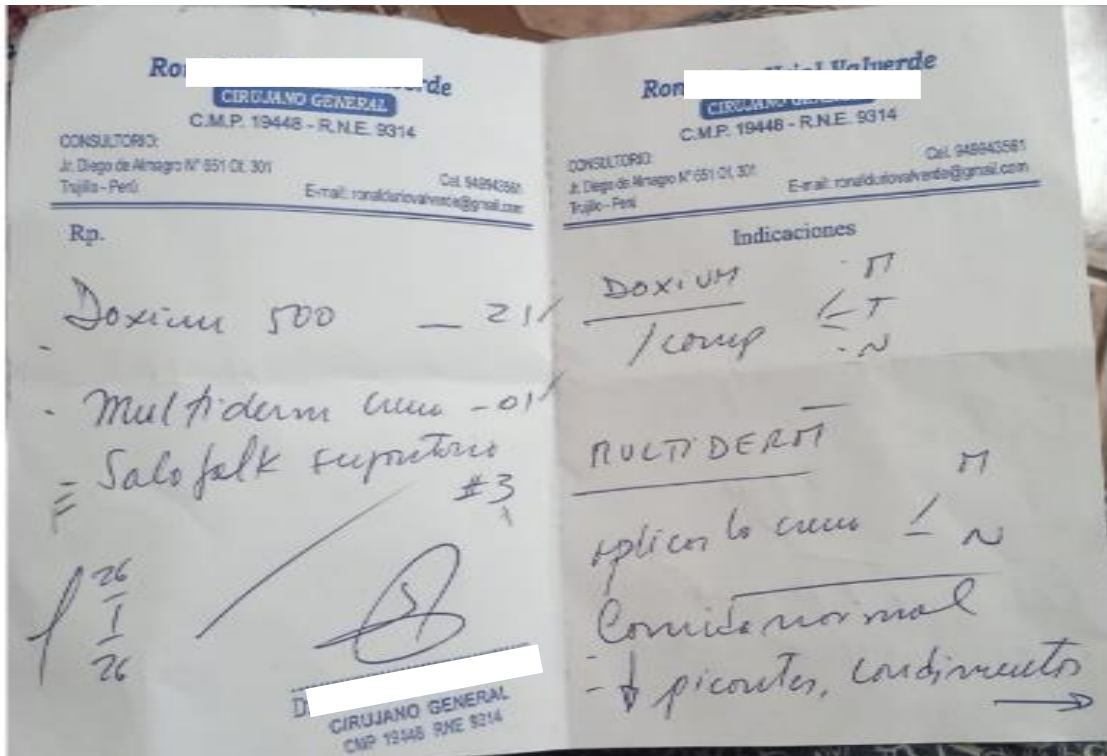 Ron rde
CIRUJANO GENERAL
C.M.P. 19448 - R.N.E. 9314
CONSULTORIO:
Jr. Diego de Almagro N° 651 Of. 301
Trujillo - Perú
Cel. 949943561
E-mail:
Rp.
Doxium 500 — 21/
- Multiderm crema - 01/
= Salofalk supositorio
#3
26
I
26
CIRUJANO GENERAL
CMP 19448 RNE 9314
Ron Valverde
CIRUJANO GENERAL
C.M.P. 19448 - R.N.E. 9314
CONSULTORIO:
Jr. Diego de Almagro N° 651 Of. 301
Trujillo - Perú
Cel. 949943561
E-mail:
Indicaciones
DOXIUM
1 comp
M
T
N
MULTIDERM
aplicar la crema
M
N
Comida normal
- ↓ picantes, condimentos
→